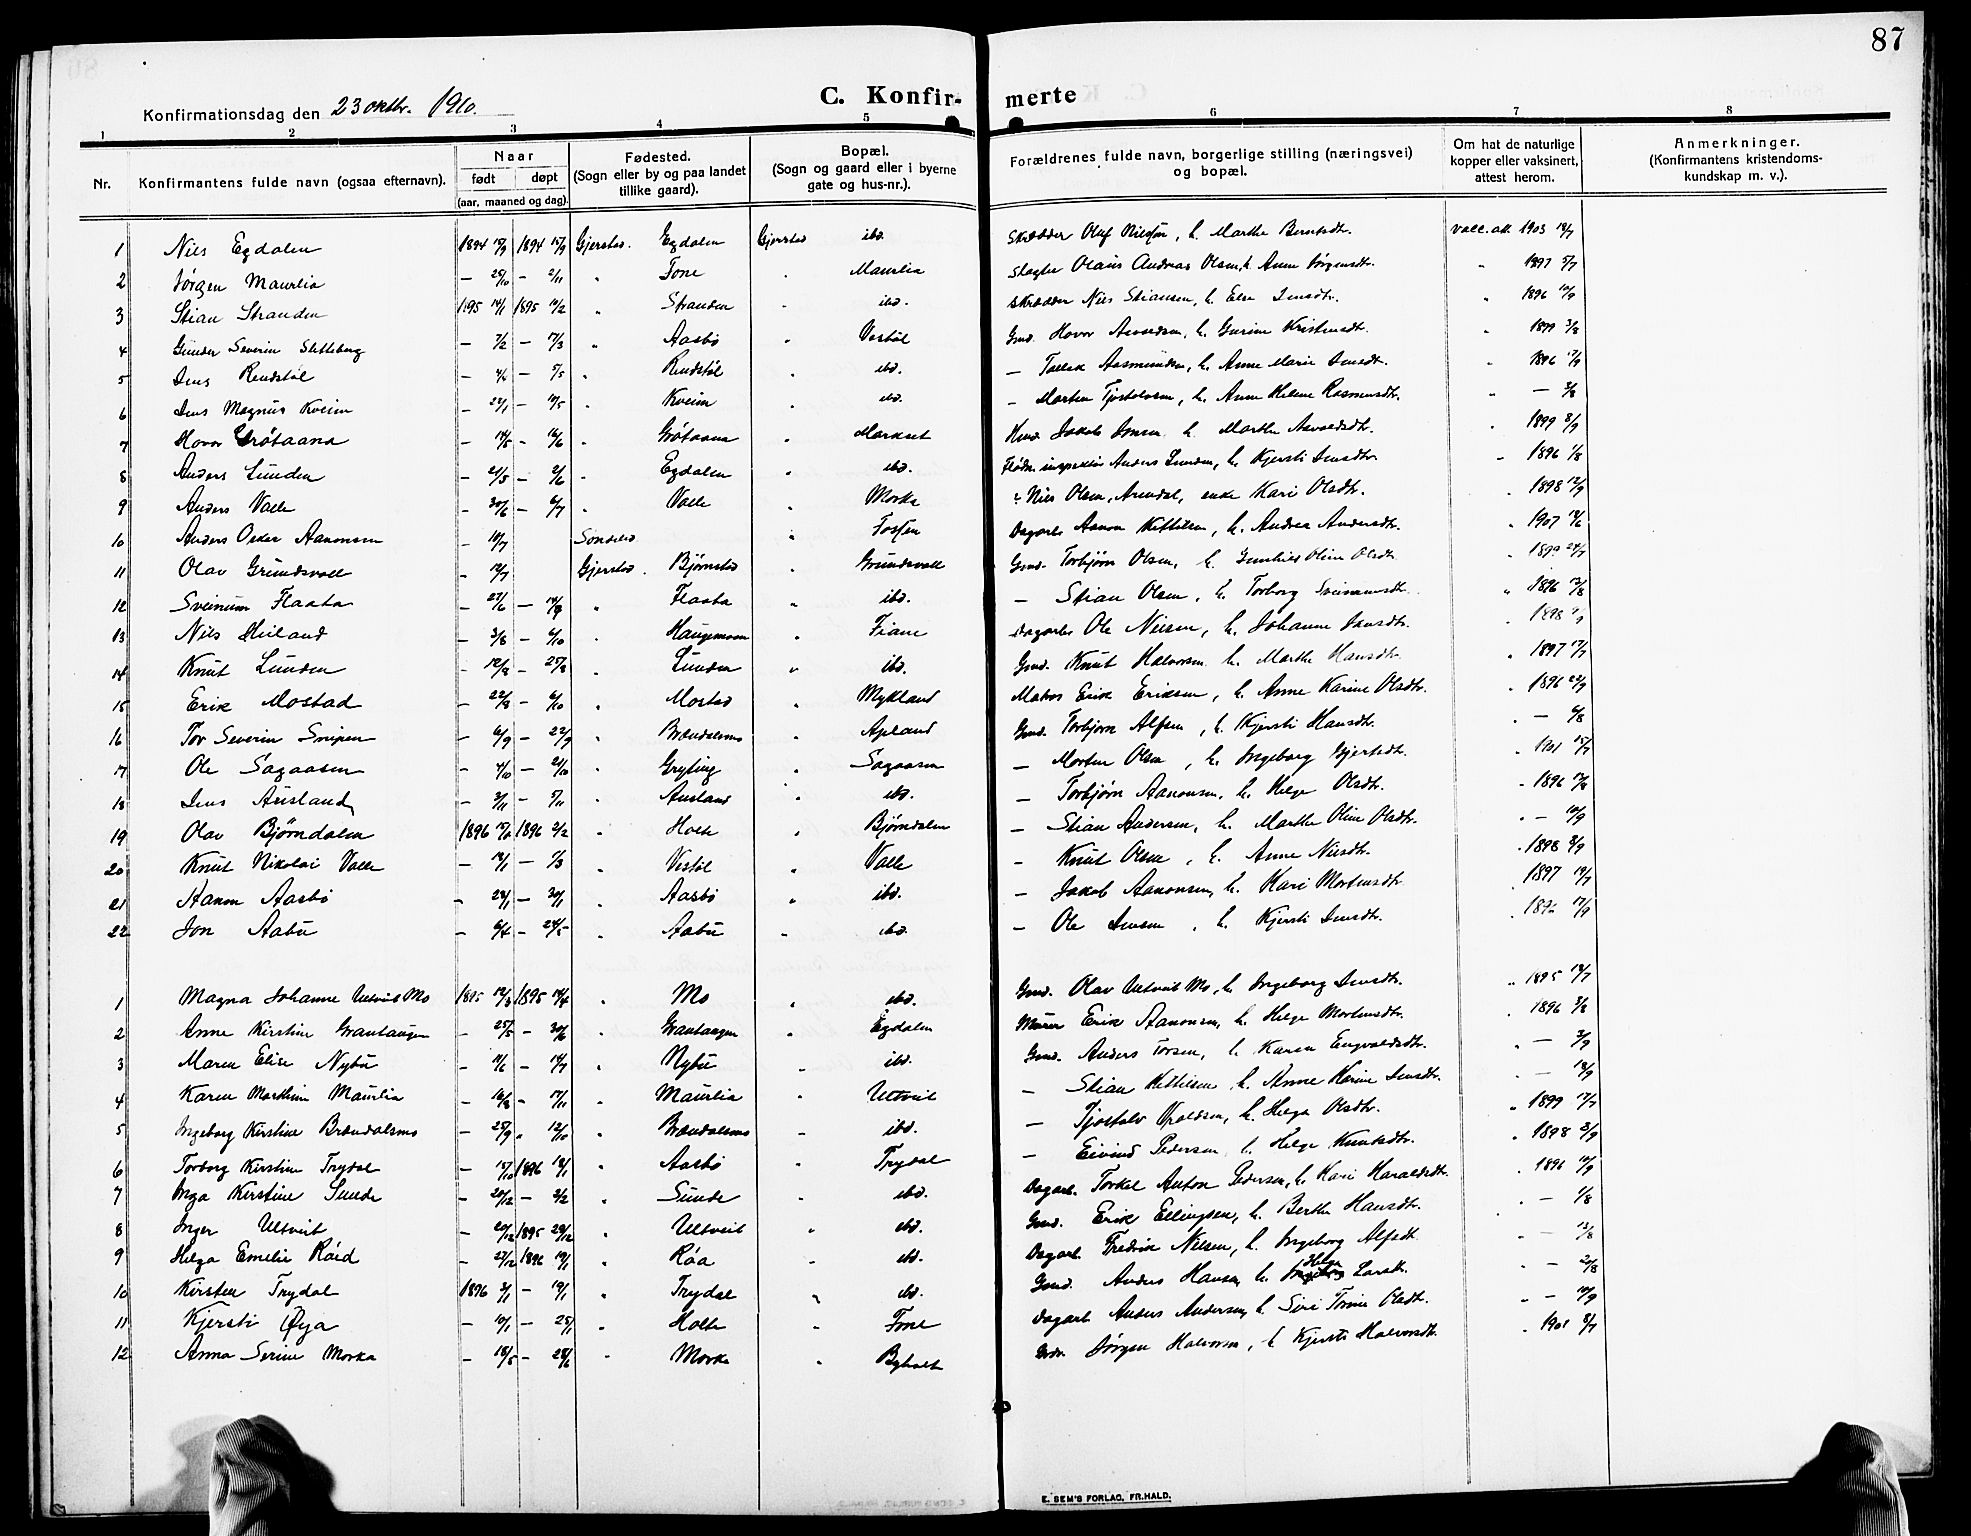 87
Konfirmationsdag den 23 oktbr. 1910.
C. Konfir- merte
1 2 3 4 5 6 7 8
Nr. Konfirmantens fulde navn (ogsaa efternavn). Naar født døpt (aar, maaned og dag). Fødested. (Sogn eller by og paa landet tillike gaard). Bopæl. (Sogn og gaard eller i byerne gate og hus-nr.). Forældrenes fulde navn, borgerlige stilling (næringsvei) og bopæl. Om hat de naturlige kopper eller vaksinert, attest herom. Anmerkninger. (Konfirmantens kristendoms- kundskap m. v.).
1 Nils Egdalen 1894 1894 Gjerstad. Egdalen Gjerstad ibd. Skrædder Olaf Nilsen, h. Marthe Berntsdtr. vacc. att. 1903
2 Jørgen Maurlia — 25/10 — 2/11 " Tone " Maurlia Slagter Olaus Andreas Olsen, h. Anne Jørgensdtr. " 1897 5/7
3 Stian Stranden 1895 14/1 1895 " Stranden " ibd. Skrædder Niels Stiansen, h. Else Jensdtr. " 1896
4 Gunder Severin Sletteberg — 7/2 — 17/3 " Aasbø " Vestøl Gmd. Hovor h. Gurine Kristensdtr. " 1899 3/8
5 Jens Rendstøl — — 5/5 " Rendstøl " ibd. — Tallak Aasmundsen, h. Anne Marie Jensdtr. " 1896 17/9
6 Jens Magnus Kveim — 22/1 — " Kveim " ibd. — Morten Tjostolvsen, h. Anne Helene Rasmusdtr. " — 3/8
7 Hovor Grøtaana — 14/5 — 16/6 " Grøtaana " Markset Jakob Jensen h. Marthe " 1899 8/9
8 Anders Lunden — 21/5 — 2/6 " Egdalen " ibd. Anders Lunden, h. Kjersti Jensdtr. " 1896 1/8
9 Anders Valle — 30/6 — 6/7 " Valle " Morka Nils Olsen, Arendal, enke Kari Olsdtr. " 1898 12/9
10 Anders Oskar Aanonsen — Søndeled " Fossen Dagarb. Aanon Kittelsen, h. Andrea Andersdtr. " 1907
11 Olav Grundsvall — 12/7 Gjerstad. Bjørnstad " Grundsvall Gmd. Torbjørn Olsen, h. Gunhild Oline Olsdtr. " 1899 24/7
12 Sveinum Flaata — 27/6 — " Flaata " ibd. — Stian Olsen, h. Torborg Sveinumsdtr. " 1896 12/8
13 Nils Heiland — 3/8 — 6/10 " Haugemoen " Fiane Dagarb. Ole Nielsen, h. Johanne Jensdtr. 1898
14 Knut Lunden — 12/8 — 25/8 " Lunden " ibd. Gmd. Knut Halvorsen h. Marthe Hansdtr. " 1897 17/7
15 Erik Mostad — 22/8 — 6/10 " Mostad " Mykland Matros Erik Eriksen, h. Anne Karine Olsdtr. " 1896 22/9
16 Tor Severin Snipen — 6/9 — 22/9 " Brændalsmo " Apland Gmd. Torbjørn Alfsen, h. Kjersti Hansdtr. " — 6/8
17 Ole Sagaasen — 4/10 — 21/10 " Gryting " Sagaasen — Morten Olsen, h. Ingeborg Gjertsdtr. " 1901 15/7
18 Jens Ausland — 3/11 — 5/11 " Ausland " ibd. — Torbjørn Aanonsen, h. Helge Olsdtr. " 1896
19 Olav Bjørndalen 1896 1896 2/2 " Holte " Bjørndalen — Stian Andersen, h. Marthe Oline Olsdtr. " — 10/9
20 Knut Nikolai Valle — 12/1 — 1/3 " Vestøl " Valle — Knut Olsen, h. Anne Nilsdtr. " 1898 8/9
21 Hanon Aasbø — 28/1 — 30/1 " Aasbø " ibd. — Jakob Aanonsen, h. Kari Mortensdtr. " 1897 19/7
22 Jon Aabu — — " Aabu " ibd. — Ole Jensen, h. Kjersti Jensdtr. " 17/9
1 Magna Johanne Ultveit Mo 1895 12/3 1895 14/4 " Mo " ibd. Gmd. Olav Ultveit Mo, h. Ingeborg Jensdtr. " 1895
2 Anne Kirstine Grantangen — 25/5 — 30/6 " Grantangen " Egdalen Murer Erik Aanonsen, h. Helge Mortensdtr. " 1896 3/8
3 Maren Elise Nybu — 11/6 — 14/7 " Nybu " ibd. Gmd. Anders Torsen, h. Karen Engvaldsdtr. " — 3/9
4 Karen Marthine Maurlia — 16/8 — 17/11 " Maurlia " Ultveit — Stian Kittilsen h. Anne Karine Jensdtr. " —
5 Ingeborg Kirstine Brændalsmo — 25/9 " 12/10 " Brændalsmo — ibd. — Tjostolv h. Helga Olsdtr. " 1899 17/7
6 Torborg Kirstine Trydal — 15/10 1896 12/1 " Aasbø " Trydal — Eivind Pedersen h. Helge Knutsdtr. " 1898 3/9
7 Inga Kirstine Sunde — 20/12 — 2/2 " Sunde " ibd. Dagarb. Torkel Anton Pedersen, h. Kari Haraldsdtr. " 1896 10/9
8 Inger Ultveit — 20/12 1895 29/12 " Ultveit " ibd. Gmd. Erik Ellingsen, h. Berthe Hansdtr. " — 1/8
9 Helga Emelie Röed — 27/12 1896 19/1 " Røa " ibd. Dagarb. Fredrik Nilsen, h. Ingeborg Alfsdt. " — 12/8
10 Kirsten Trydal 1896 3/1 — 19/1 " Trydal " ibd. Gmd. Anders Hansen h. Helga Larsdt. " —
11 Kjersti Øya — 10/1 — 25/1 " Holte " Tone Dagarb. Anders Andersen, h. Siri Tomine Olsdtr. " — 10/9
12 Anna Serine Morka — 18/5 — 28/6 " Morka " Byholt Jørgen Halvorsen, h. Kjersti Halvorsdtr. " 1901 8/7
E. SEM'S FORLAG, FR.HALD.